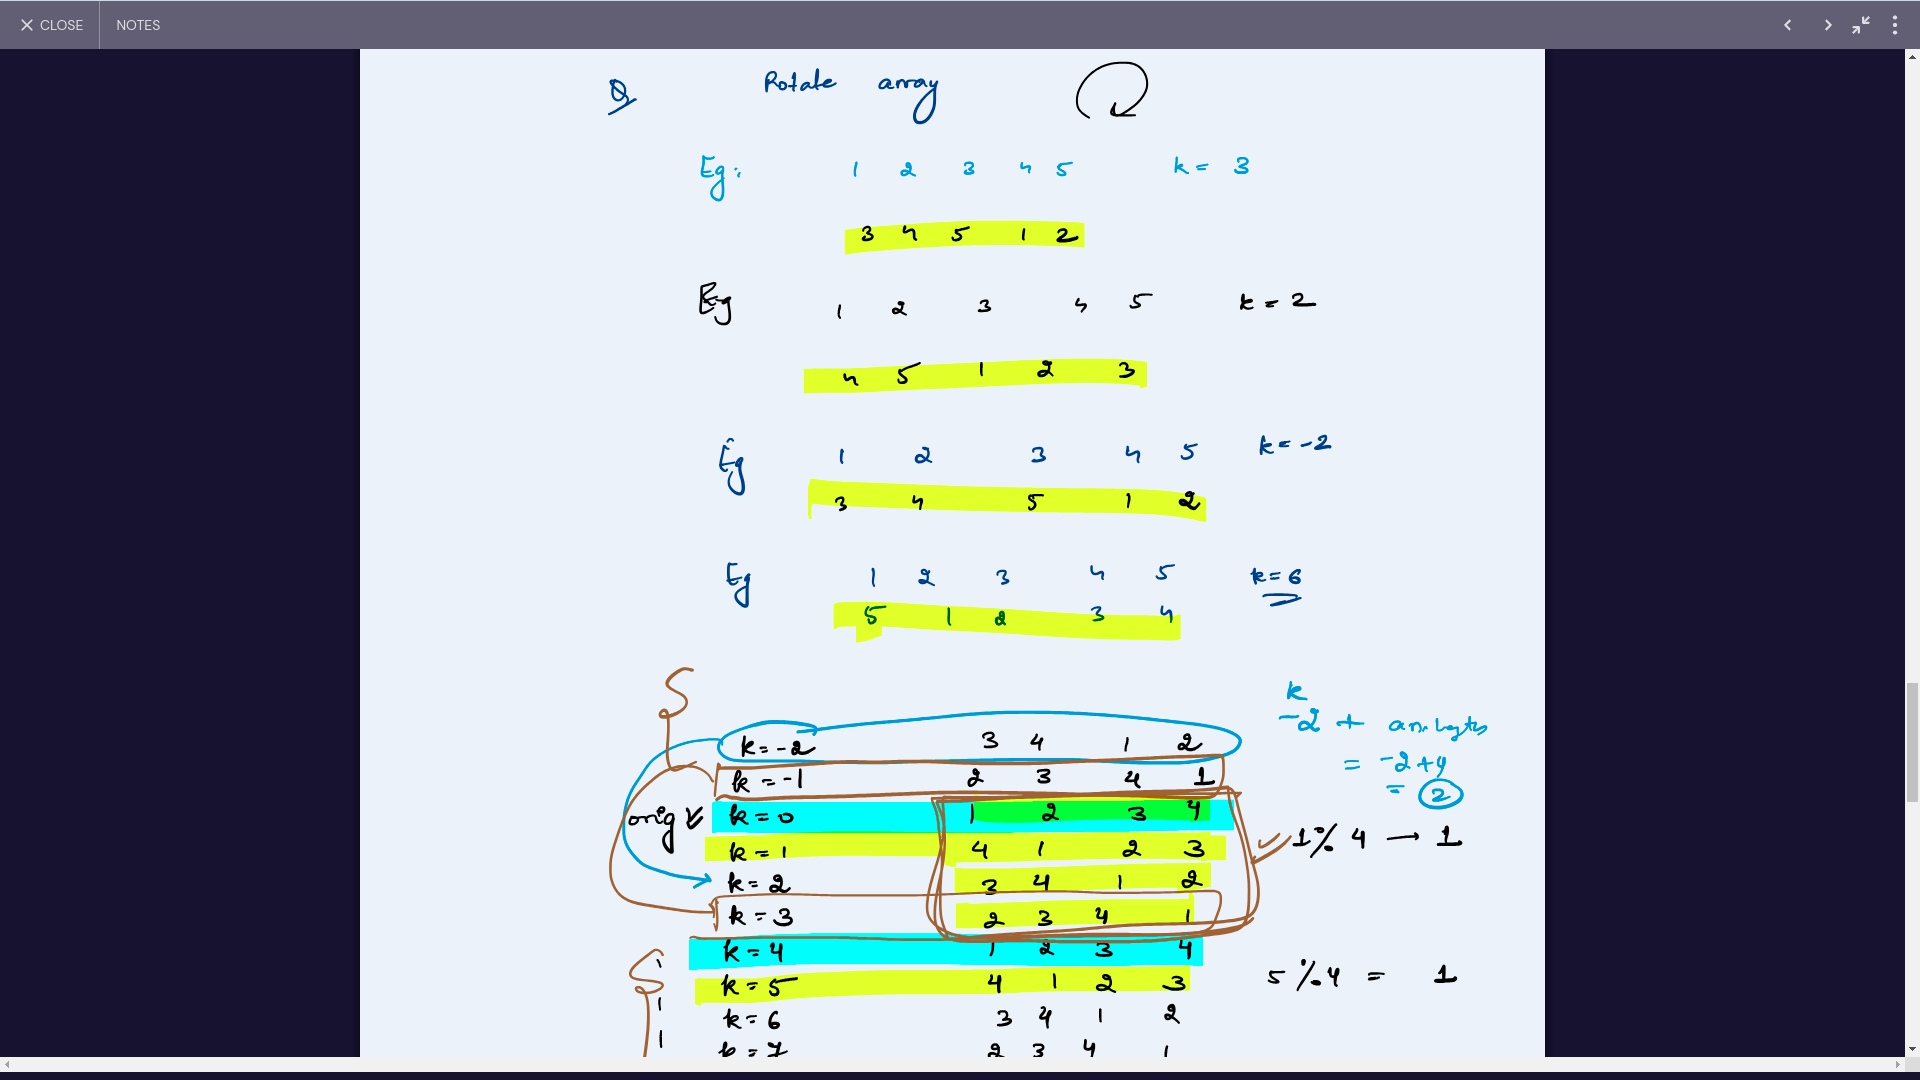 CLOSE NOTES
Q Rotate array
Eg: 1 2 3 4 5 k = 3
3 4 5 1 2
Eg 1 2 3 4 5 k = 2
4 5 1 2 3
Eg 1 2 3 4 5 k = -2
3 4 5 1 2
Eg 1 2 3 4 5 k = 6
5 1 2 3 4
k
-2 +
k = -2 3 4 1 2
= -2+4
k = -1 2 3 4 1
= 2
orig k = 0 1 2 3 4
k = 1 4 1 2 3
1 % 4 → 1
k = 2 3 4 1 2
k = 3 2 3 4 1
k = 4 1 2 3 4
k = 5 4 1 2 3
5 % 4 = 1
k = 6 3 4 1 2
k = 7 2 3 4 1